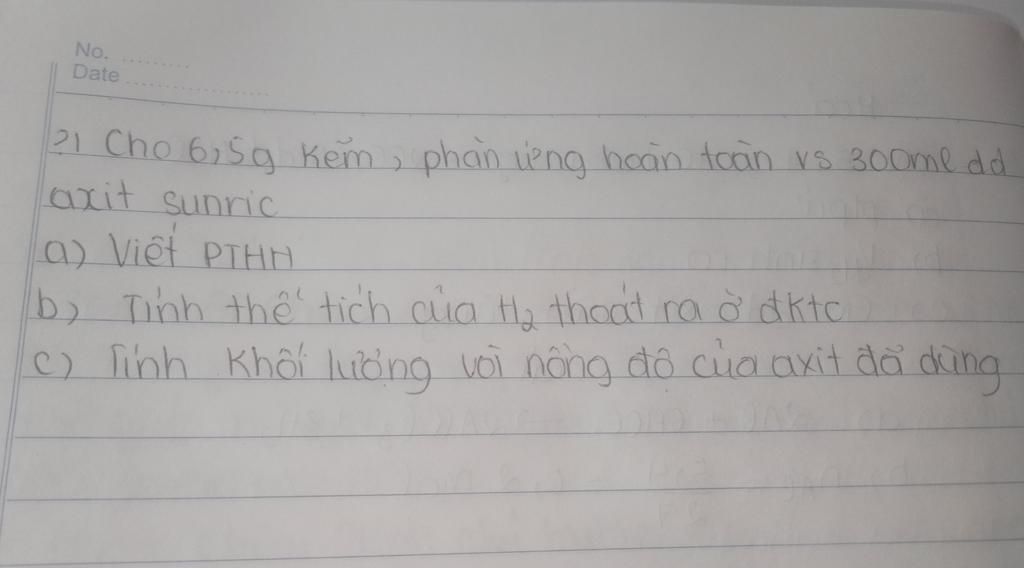 No. ..........
Date ......................
?) Cho 6,5g Kẽm, phản ứng hoàn toàn vs 300ml dd
axit sunric
a) Viết PTHH
b) Tính thể tích của H₂ thoát ra ở đktc
c) Tính khối lượng vời nồng độ của axit đã dùng